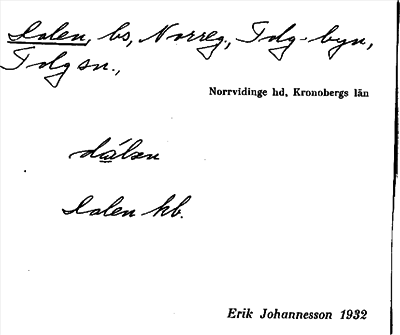 Dalen, bs, Norreg., Tolg-byn,
Tolg sn.,
Norrvidinge hd, Kronobergs län
dálən
Dalen kb.
Erik Johannesson 1932